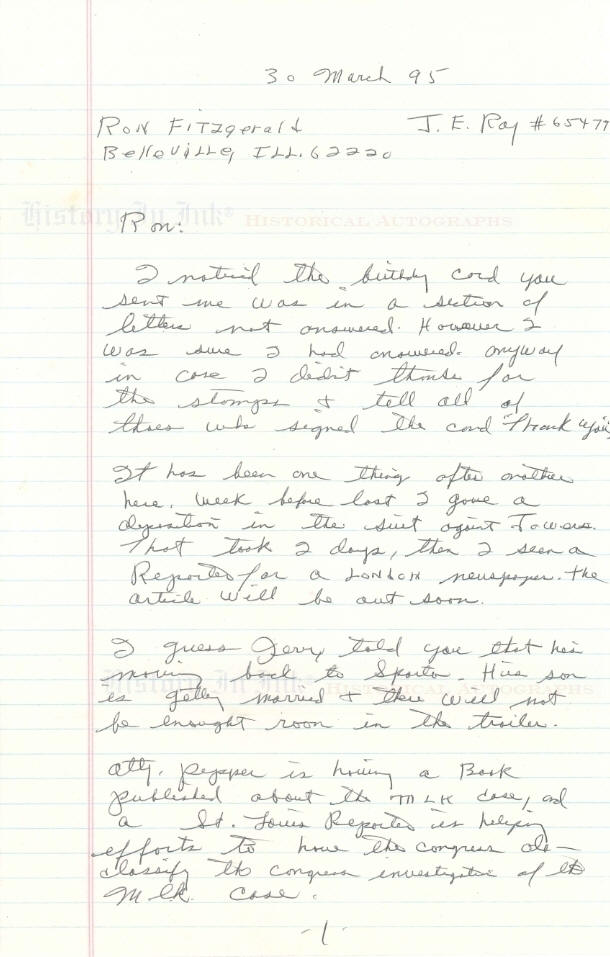 30 March 95
Ron Fitzgerald J. E. Ray #65477
Belleville, ILL. 62220
History In Ink® Historical Autographs
Ron:
I noticed the birthdy card you
sent me was in a section of
letters not answered. However I
was sure I had answered. anyway
in case I didn't thanks for
the stamps & tell all of
those who signed the card "thank you"
It has been one thing after another
here. Week before last I gave a
deposition in the suit against Towers.
That took 2 days, then I seen a
Reporter for a London newspaper. the
article will be out soon.
I guess Jerry told you that he's
moving back to Sparta. His son
History In Ink® Historical Autographs
is getting married & there will not
be enought room in the trailer.
atty. pepper is having a Book
published about the MLK case, and
a St. Louis Reporter is helping
efforts to have the congress de-
classify the congress investigative of the
MLK case.
-1-